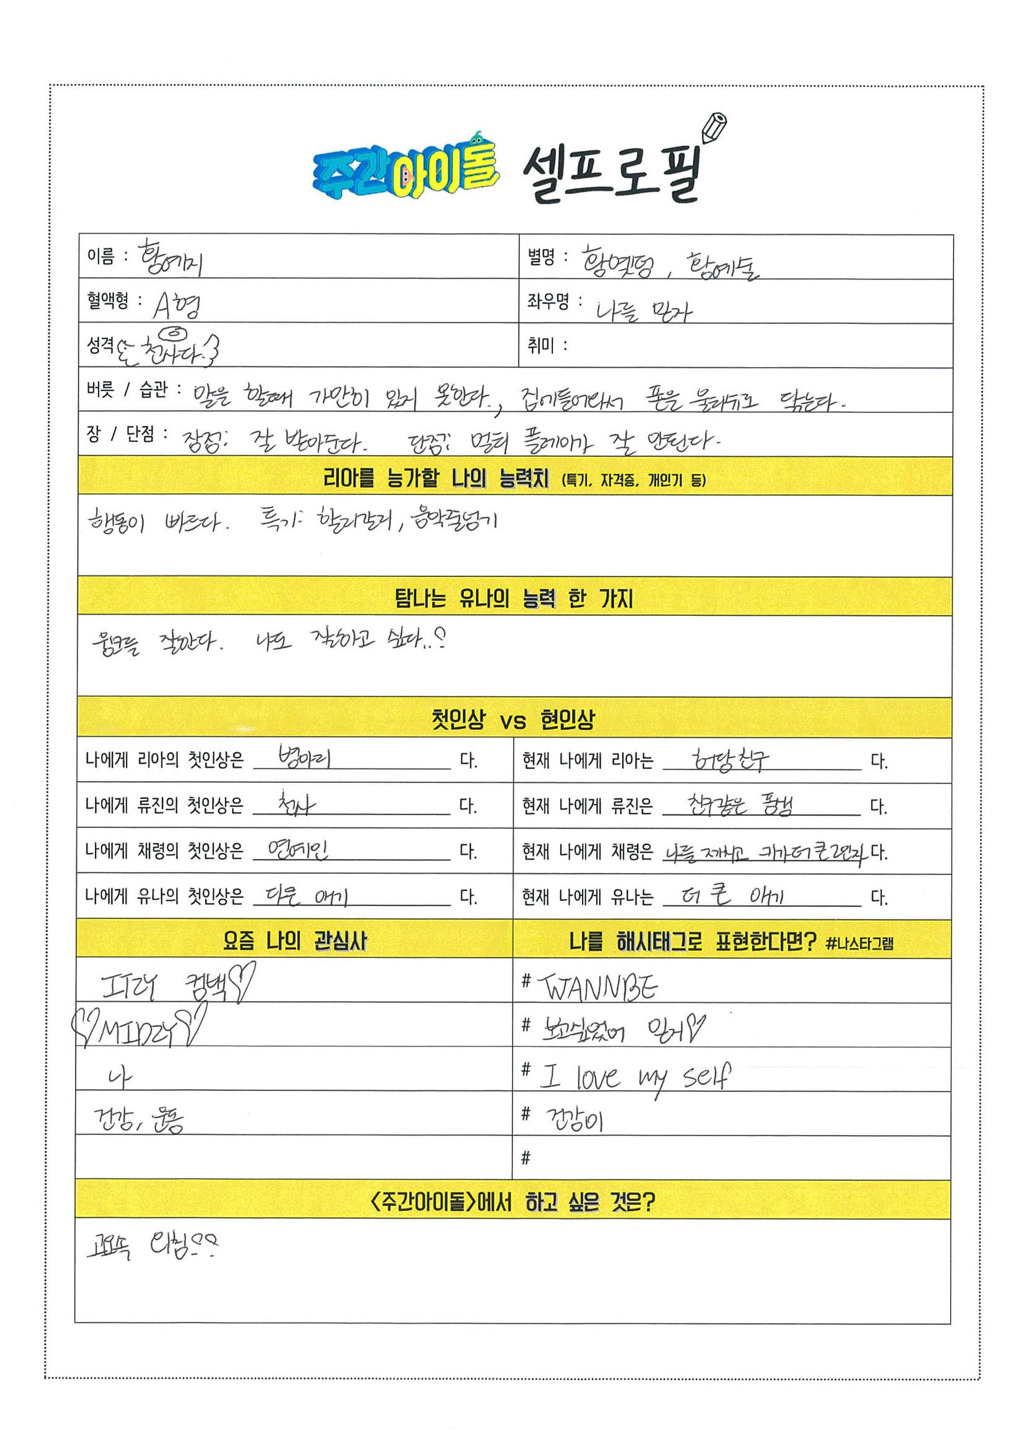 주간아이돌 셀프로필
이름 : 황예지
별명 : 황옛덩, 황예술
혈액형 : A형
좌우명 : 나를 믿자
성격 천사다.
취미 :
버릇 / 습관 : 말을 할때 가만히 있지 못한다., 집에들어와서 폰을 물티슈로 닦는다.
장 / 단점 : 장점: 잘 받아준다. 단점: 멀티 플레이가 잘 안된다.
리아를 능가할 나의 능력치 (특기, 자격증, 개인기 등)
행동이 빠르다. 특기: 할리갈리, 음악줄넘기
탐나는 유나의 능력 한 가지
윙크를 잘한다. 나도 잘하고 싶다..
첫인상 vs 현인상
나에게 리아의 첫인상은 병아리 다.
현재 나에게 리아는 허당친구 다.
나에게 류진의 첫인상은 천사 다.
현재 나에게 류진은 친구같은 동생 다.
나에게 채령의 첫인상은 연예인 다.
현재 나에게 채령은 나를 제치고 키가 더 큰 2인자 다.
나에게 유나의 첫인상은 다큰 애기 다.
현재 나에게 유나는 더 큰 애기 다.
요즘 나의 관심사
나를 해시태그로 표현한다면? #나스타그램
ITZY 컴백♡
# WANNBE
♡MIDZY♡
# 보고싶었어 믿지♡
나
# I love my self
건강, 운동
# 건강이
#
<주간아이돌>에서 하고 싶은 것은?
고요속 외침??